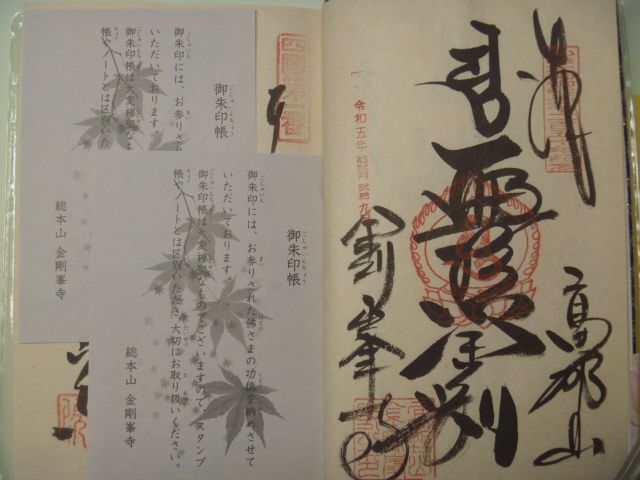 奉
高野山
遍照金剛
金剛峯寺
令和五年
四國第一番
御朱印帳
御朱印には、お参りさ
いただいております。
御朱印帳は大変神聖なも
帳やノートとは区別いた
総本山 金剛峯寺
御朱印帳
御朱印には、お参りされた佛さまの功徳を納めさせて
いただいております。
御朱印帳は大変神聖なものでございますので、スタンプ
帳やノートとは区別いただき、大切にお取り扱いください。
総本山 金剛峯寺